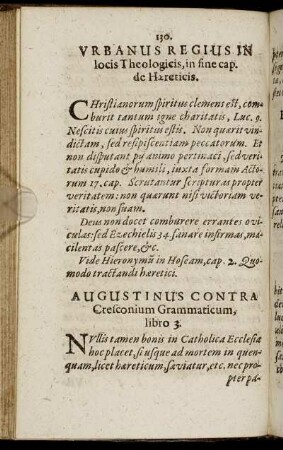 130.
VRBANUS REGIUS IN
locis Theologicis, in fine cap.
de Hæreticis.
CHristianorum spiritus clement est, com
burit tantum igne charitatis, Luc. 9.
Nescitis cuius spiritus estis. Non quærit vin
dictam, sed resipiscentiam peccatorum. Et
non disputant pij animo pertinaci, sed veri
tatis cupido & humili, iuxta formam Acto
rum 17. cap. Scrutantur scripturas propter
veritatem: non quærunt nisi victoriam ve
ritatis, non suam.
Deus non docet comburere errantes ovi
culas: sed Ezechielis 34. sanare infirmas, ma
cilentas pascere, &c.
Vide Hieronymũ in Hoseam, cap. 2. Quo
modo tractandi hæretici.
AUGUSTINUS CONTRA
Cresconium Grammaticum,
libro 3.
NVllis tamen bonis in Catholica Ecclesia
hoc placet, si usque ad mortem in quen-
quam, licet hæreticum, sæviatur, etc. nec pro
pter pa-